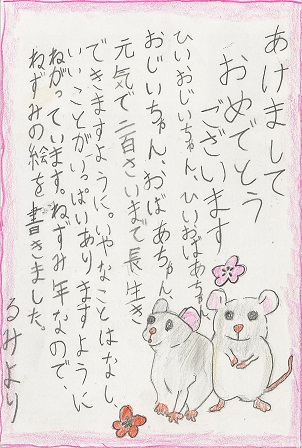 あけまして
おめでとう
ございます
ひいおじいちゃん、ひいおばあちゃん、
おじいちゃん、おばあちゃん、
元気で二百さいまで長生き
できますように。いやなことはなし、
いいことがいっぱいありますように
ねがっています。ねずみ年なので、
ねずみの絵を書きました。
るみより